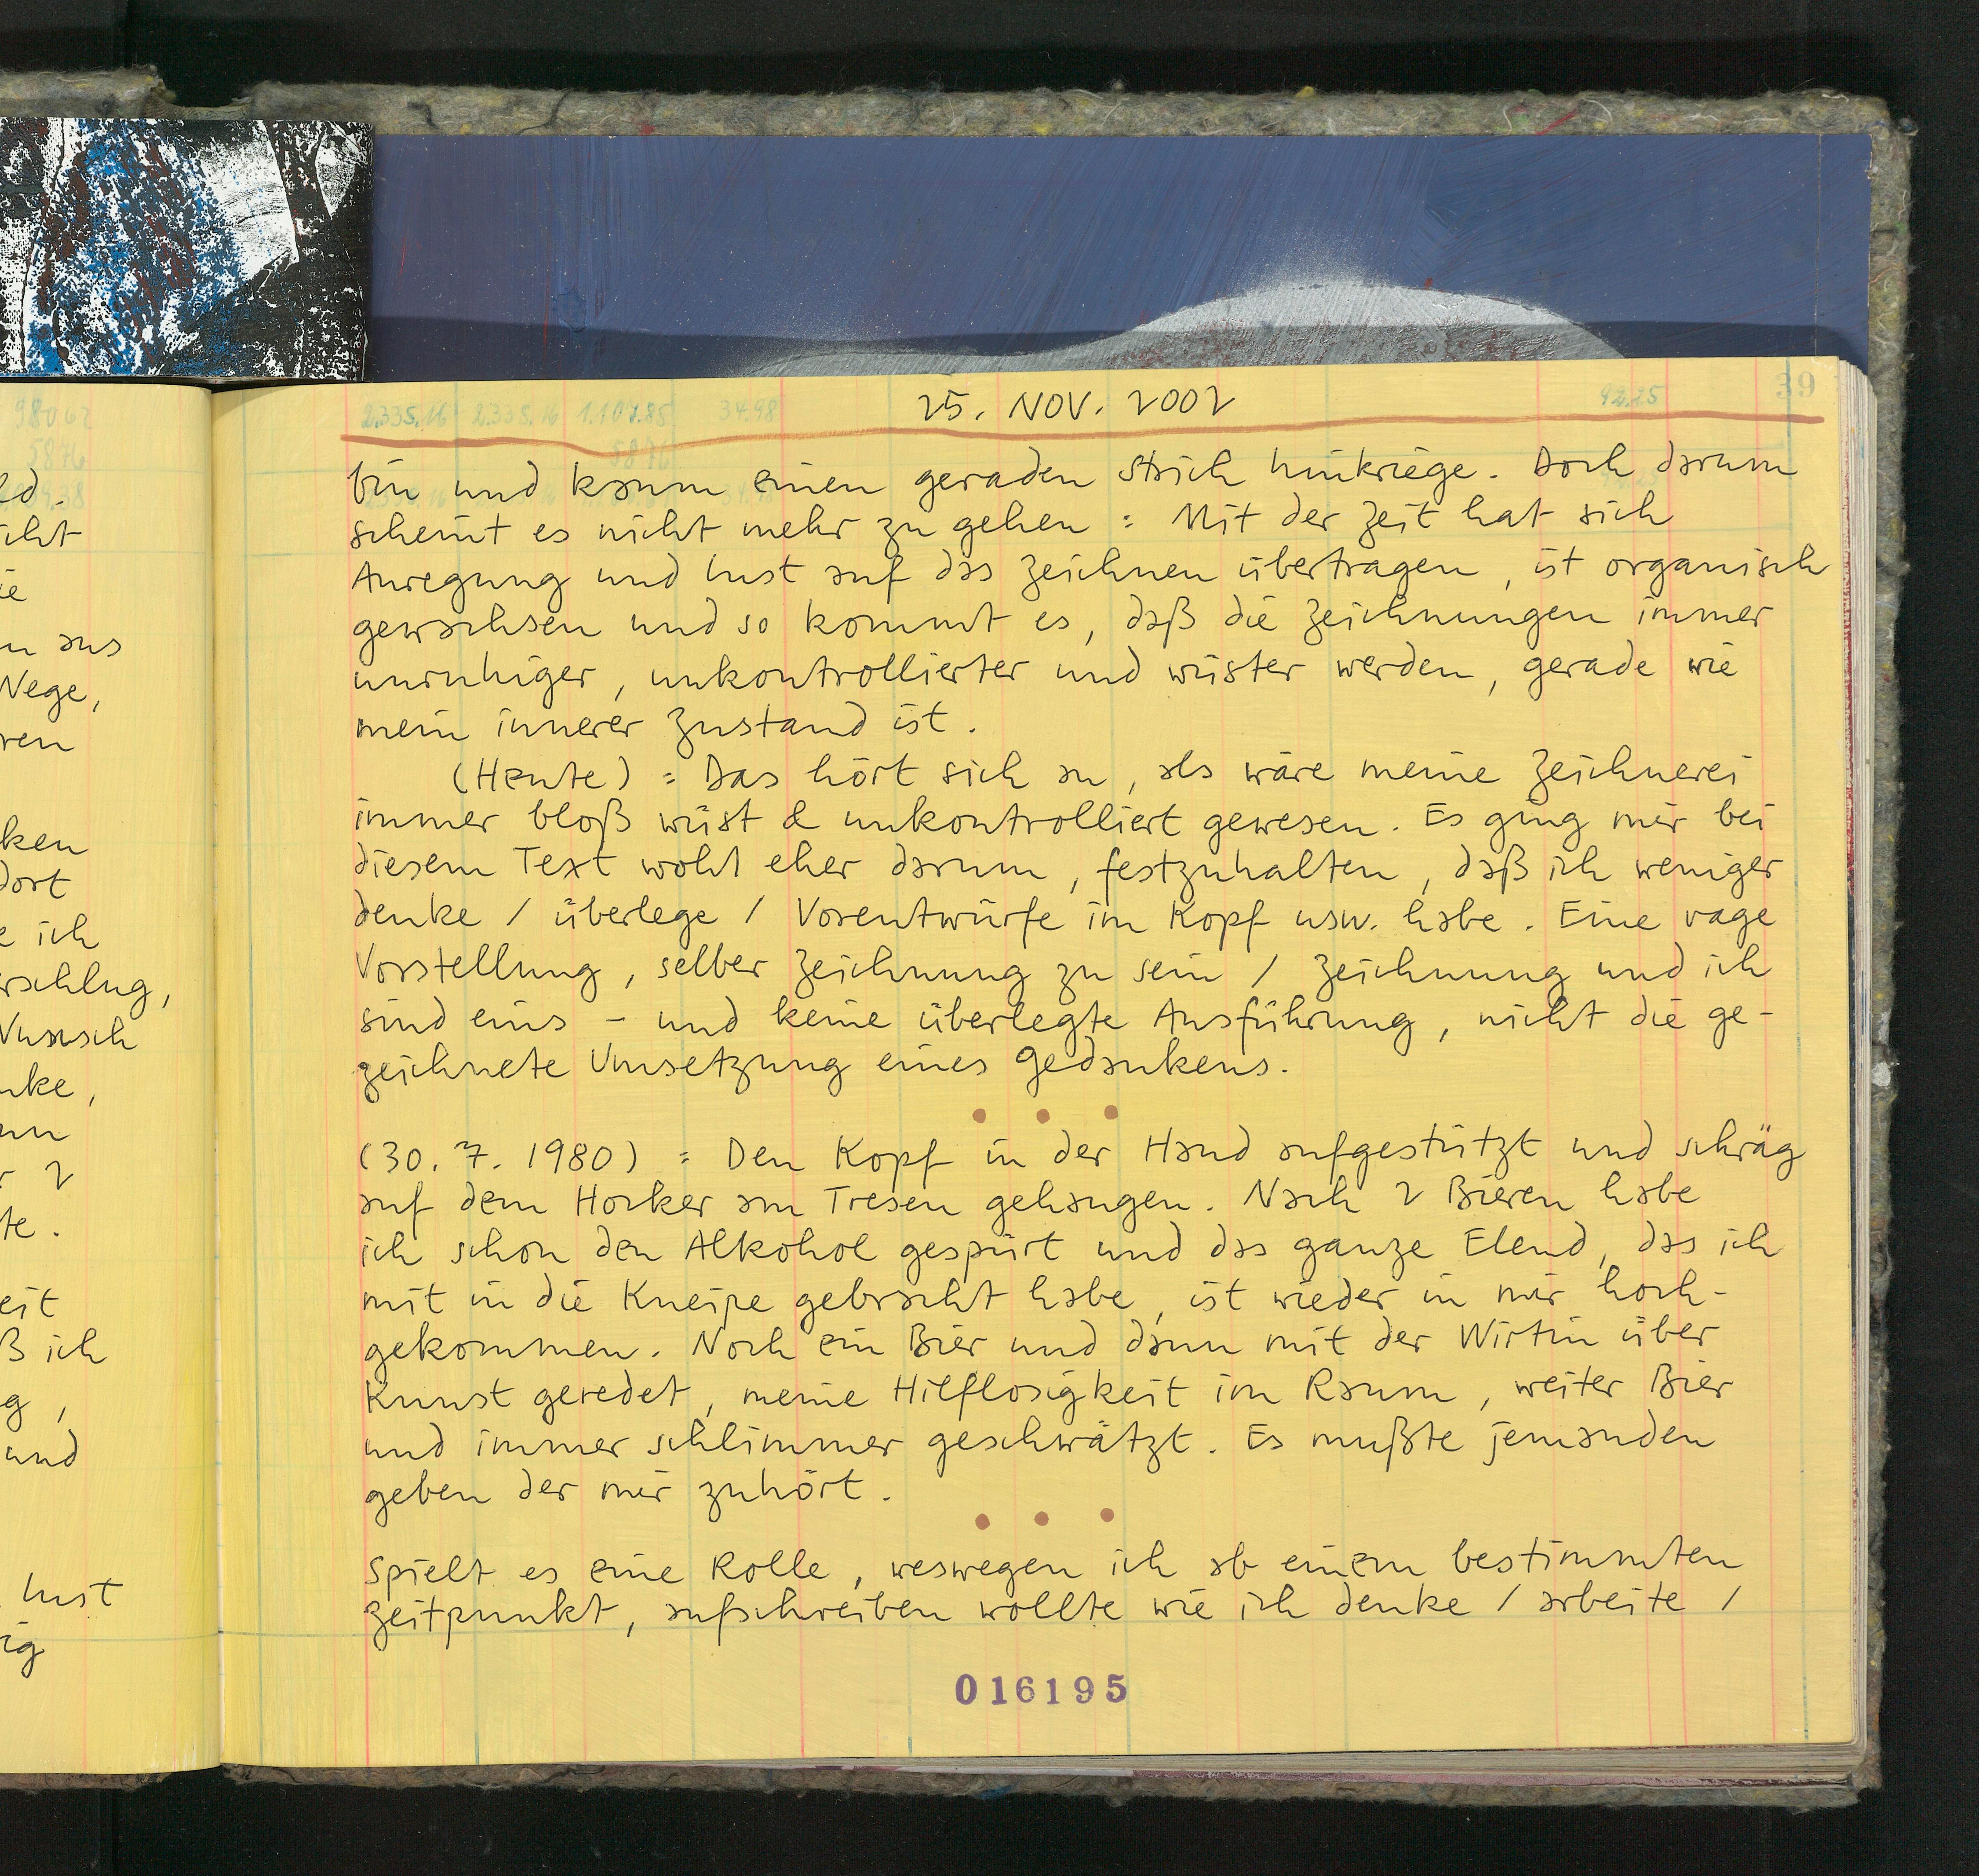 98062
2.335.16 2.335.16 1.107.85 34.98
25. NOV. 2002
92.25
39
5876
5876
bin und kaum einen geraden Strich hinkriege. Doch darum
scheint es nicht mehr zu gehen : Mit der Zeit hat sich
Anregung und Lust auf das Zeichnen übertragen, ist organisch
gewachsen und so kommt es, daß die Zeichnungen immer
unruhiger, unkontrollierter und wüster werden, gerade wie
mein innerer Zustand ist.
(Heute) : Das hört sich an, als wäre meine Zeichnerei
immer bloß wüst & unkontrolliert gewesen. Es ging mir bei
diesem Text wohl eher darum, festzuhalten, daß ich weniger
denke / überlege / Vorentwürfe im Kopf usw. habe. Eine vage
Vorstellung, selber Zeichnung zu sein / Zeichnung und ich
sind eins - und keine überlegte Ausführung, nicht die ge-
zeichnete Umsetzung eines Gedankens.
(30. 7. 1980) : Den Kopf in der Hand aufgestützt und schräg
auf dem Hocker am Tresen gehangen. Nach 2 Bieren habe
ich schon den Alkohol gespürt und das ganze Elend, das ich
mit in die Kneipe gebracht habe, ist wieder in mir hoch-
gekommen. Noch ein Bier und dann mit der Wirtin über
Kunst geredet, meine Hilflosigkeit im Raum, weiter Bier
und immer schlimmer geschwätzt. Es mußte jemanden
geben der mir zuhört.
Spielt es eine Rolle, weswegen ich ab einem bestimmten
Zeitpunkt, aufschreiben wollte wie ich denke / arbeite /
016195